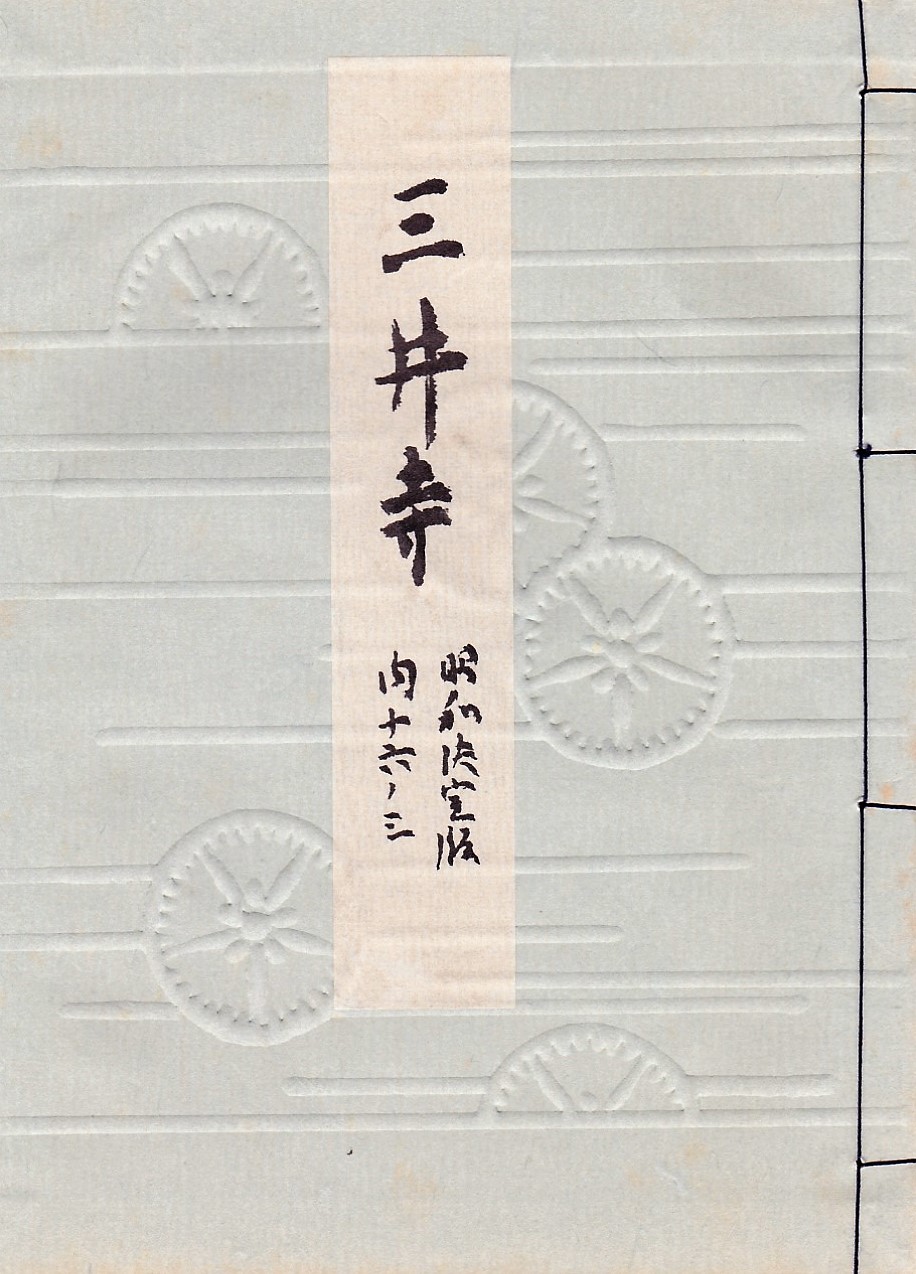 三井寺
昭和決定版
内十六ノ三